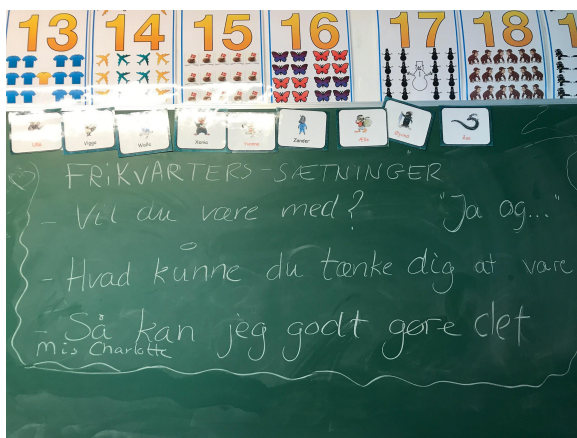 13 14 15 16 17 18 1
Vigga Walle Xenia Zander Åse
FRIKVARTERS-SÆTNINGER
- Vil du være med? "Ja og..."
- Hvad kunne du tænke dig at være
- Så kan jeg godt gøre det
Mis Charlotte